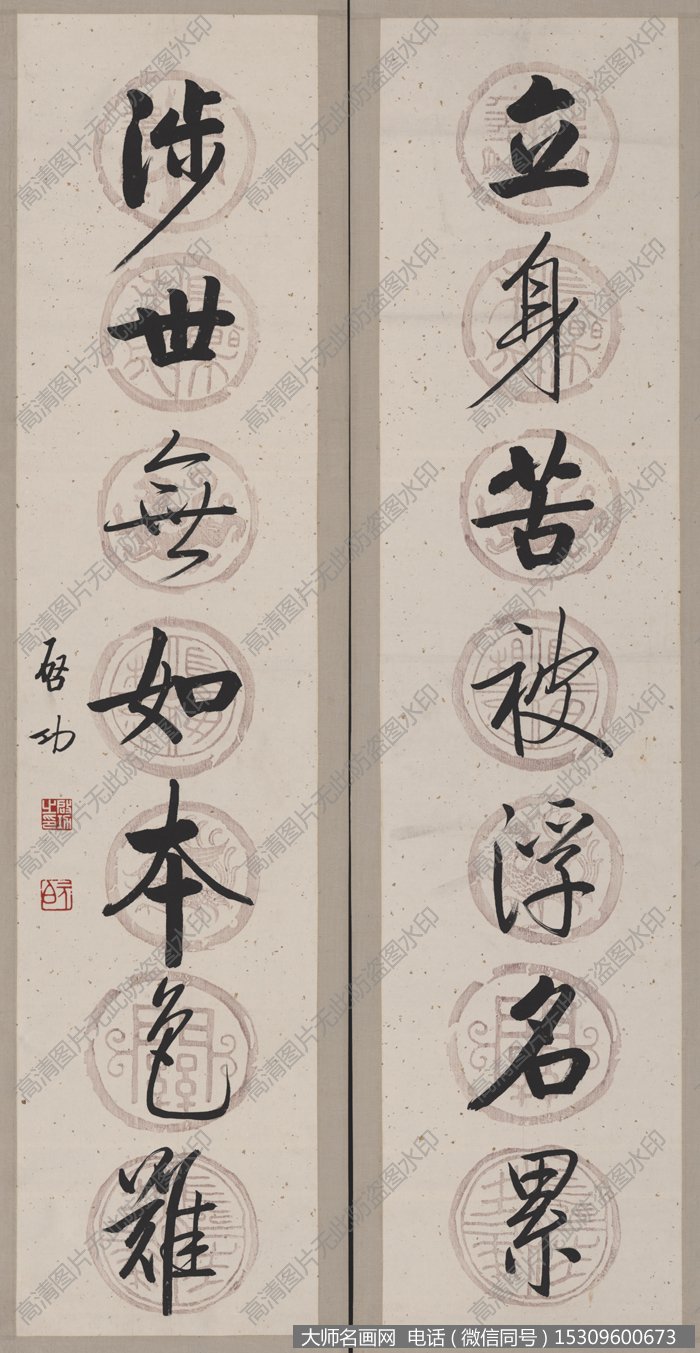 立身苦被浮名累
涉世無如本色難
启功
啟功之印
元白
高清图片无此防盗图水印
大师名画网 电话（微信同号）15309600673